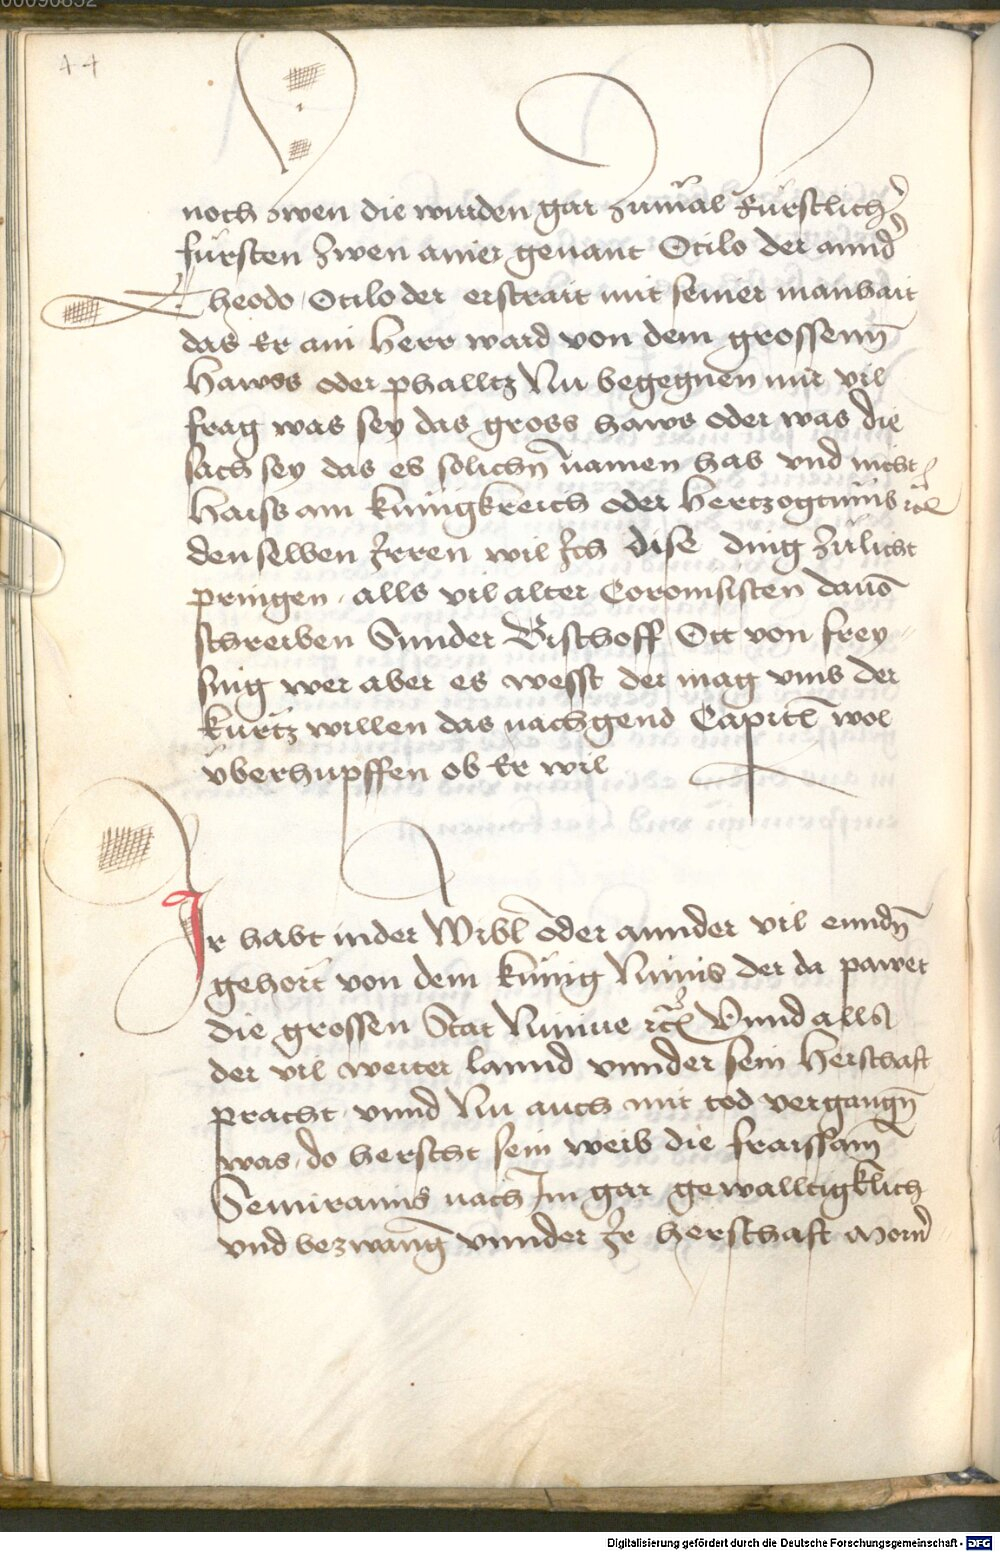 44
noch zwen die wurden gar zumal kürstlich
fürsten zwen ainer genant Otilo der annd
Theodo / Otilo der erstrait mit seiner manhait
das Er ain herr ward von dem grossenn
Hawss oder phalltz Nu begegnen mir vil
frag was sey das gross haws oder was die
sach sey das es solichn namen hab vnd nicht
haiss ain künigkreich oder hertzogtumb
denselben Irren wil Ich dise ding zu licht
pringen / alls vil alter Coronisten dauō
schreiben Sunder Bischoff Ott von frey
sing wer aber es wesst der mag vmb der
kürtz willen das nachgend Capitl wol
überhupffen ob Er wil
Ir habt in der Wibl oder annder vil enndn
gehört von dem künig Ninus der da pawet
die grossen Stat Niniue Vnnd alls
der vil weiter lannd vnnder sein herschaft
pracht vnnd Nu auch mit tod vergangn
was / do herscht sein weib die fraissam
Semiramis nach Im gar gewalltigklich
vnd bezwang vnnder Ir herschaft Morn
Digitalisierung gefördert durch die Deutsche Forschungsgemeinschaft - DFG